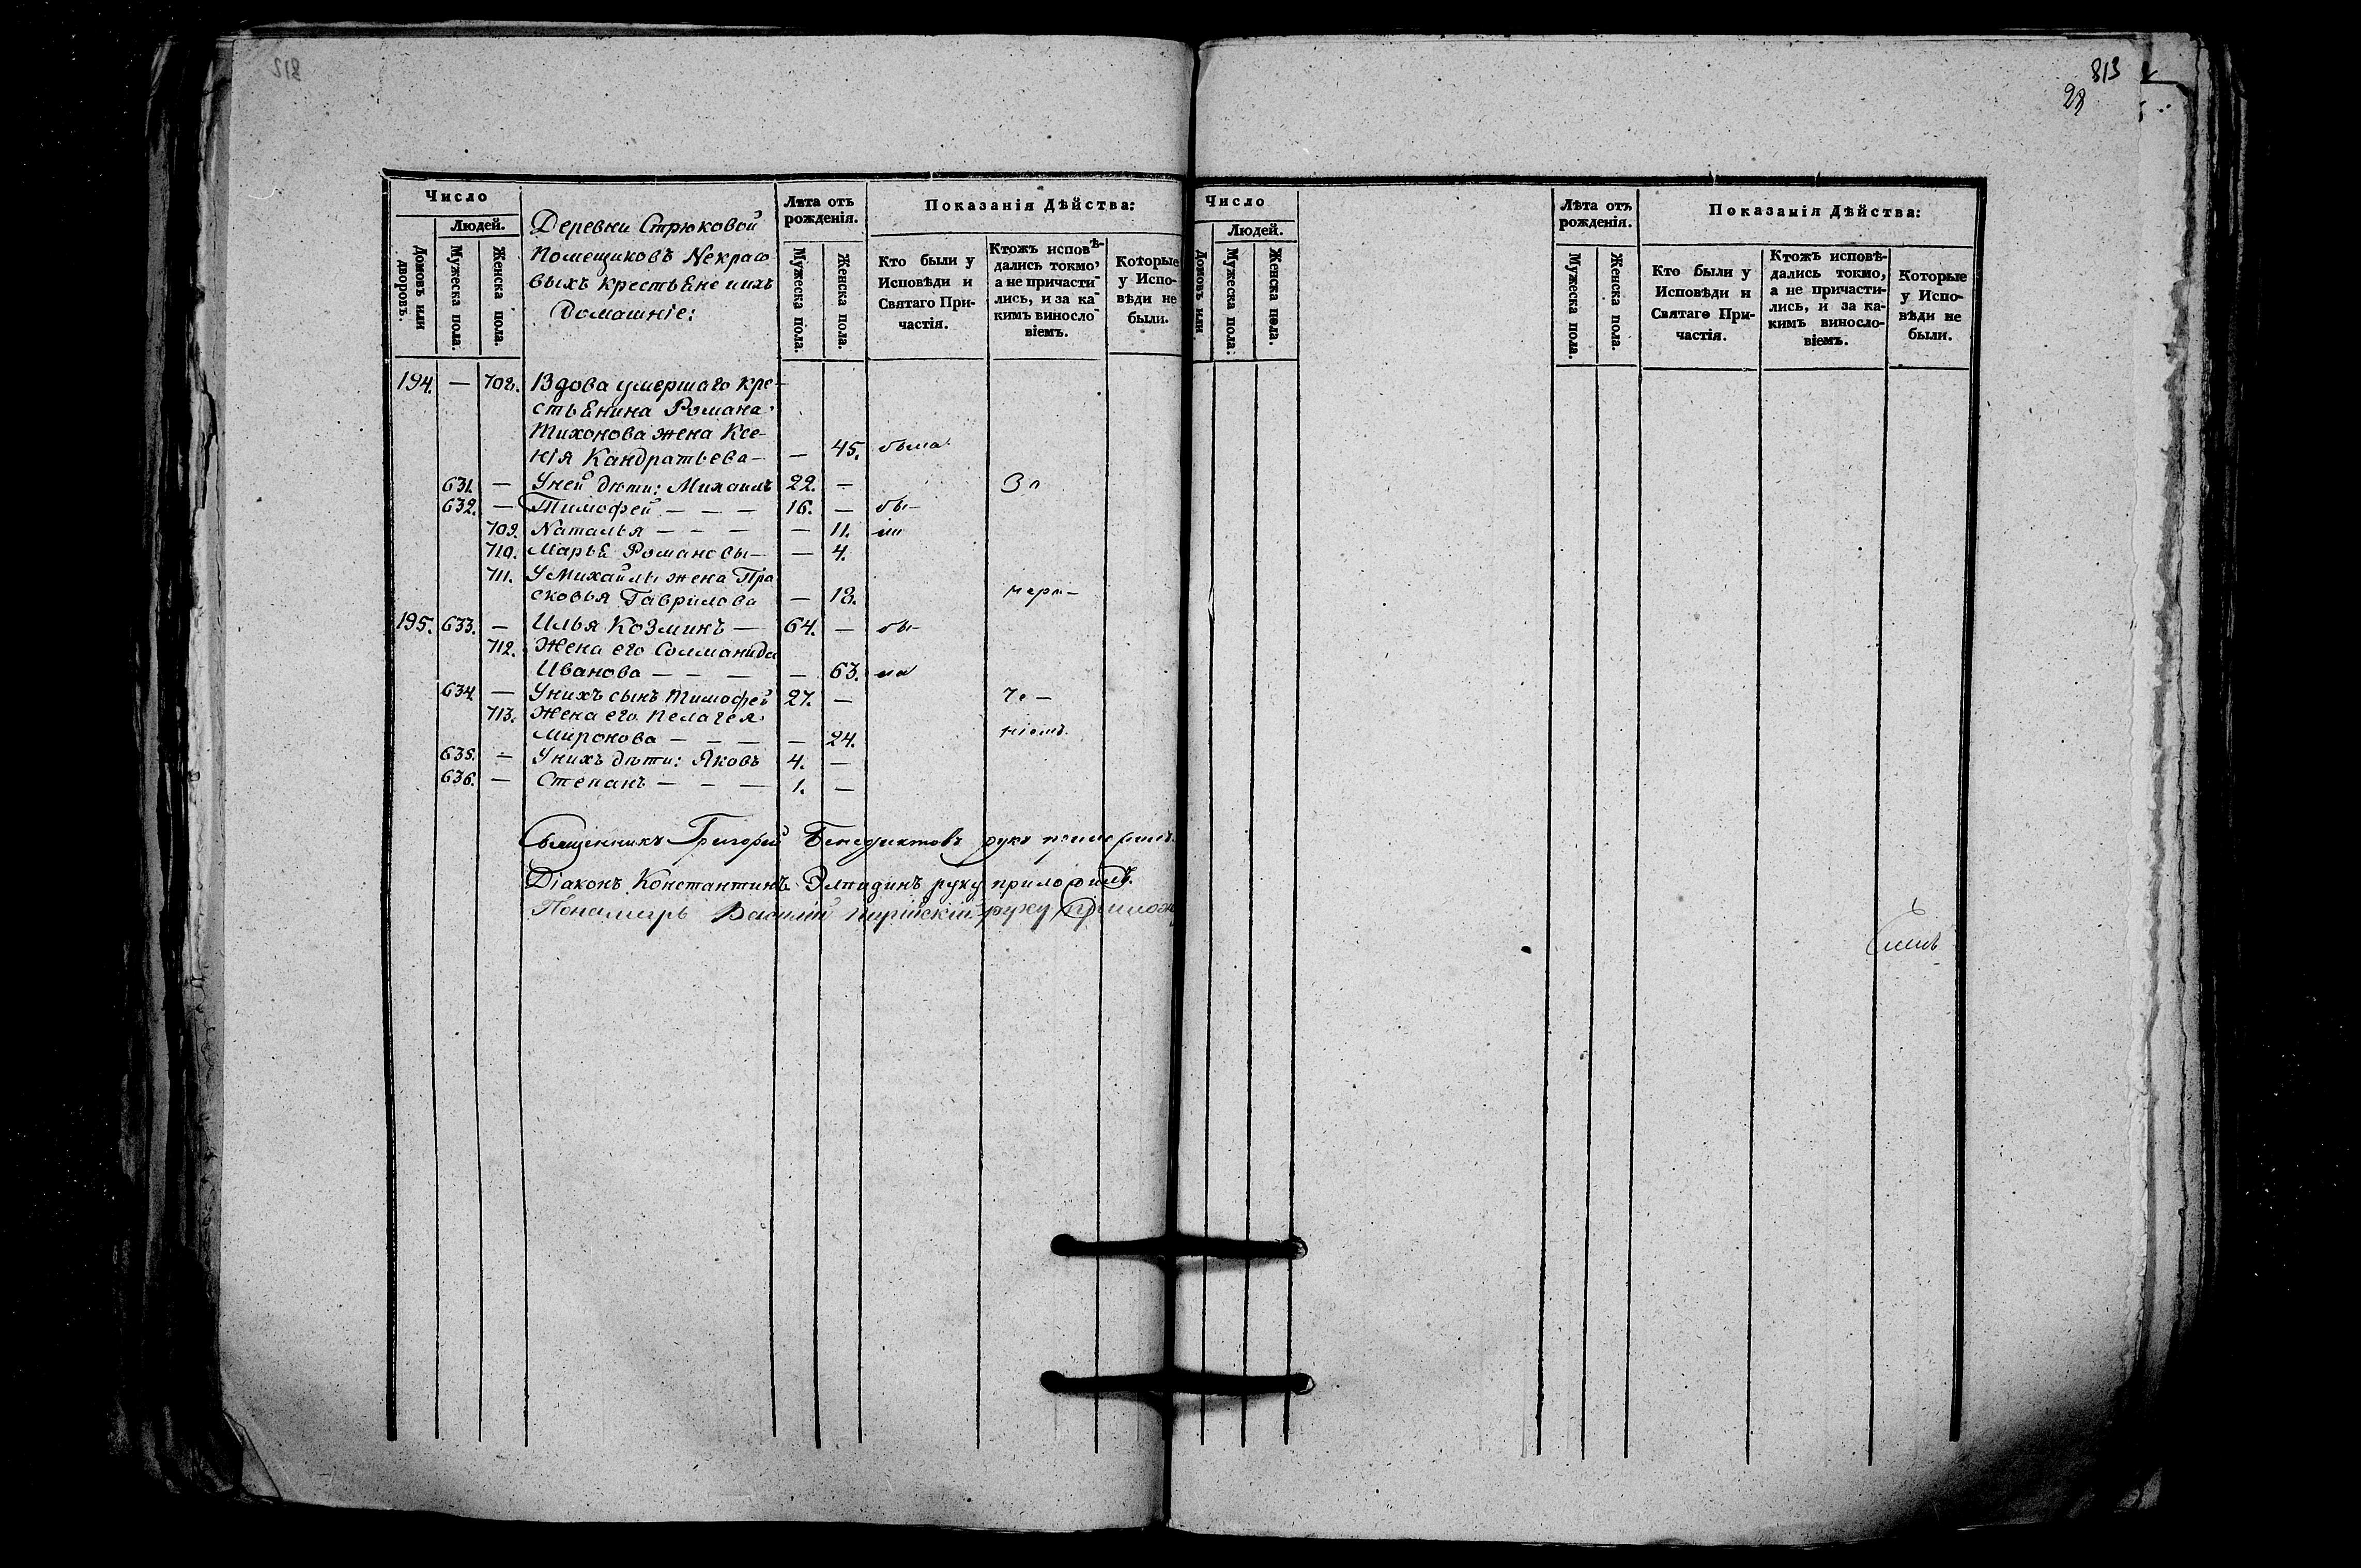 812
Число
Людей.
Домовъ или дворовъ.
Мужеска пола.
Женска пола.
Деревни Стрюковой
Помещиковъ Некрасо
выхъ крестьяне ихъ
Домашніе:
Лѣта отъ рожденія.
Мужеска пола.
Женска пола.
Показанія Дѣйства:
Кто были у Исповѣди и Святаго Причастія.
Ктожъ исповѣдались токмо, а не причастились, и за какимъ винословіемъ.
Которые у Исповѣди не были.
194. — 708. Вдова умершаго кре-
стьянина Романа
Тихонова жена Ксе-
нія Кандратьева — — 45. была
631. — У ней дѣти: Михаилъ 22. — За
632. — Тимофей — — — 16. — бы-
709. Наталья — — — — 11. ли
710. Марья Романовы — — 4.
711. У Михаилы жена Пра
сковья Гаврилова — 18. мере-
195. 633. — Илья Козминъ — 64. — бы-
712. Жена его Соломанида
Иванова — — — — 63. ли
634. — У нихъ сынъ Тимофей 27. —
713. Жена его Пелагея
Миронова — — — — 24. ніемъ.
635. — У нихъ дѣти: Яковъ 4. —
636. — Степанъ — — — 1. —
Священникъ Григорей Бенедиктовъ руку приложилъ.
Діаконъ Константинъ Элпидинъ руку приложилъ.
Понамарь Василій руку прилож
813
28
Число
Людей.
Домовъ или
Мужеска пола.
Женска пола.
Лѣта отъ рожденія.
Мужеска пола.
Женска пола.
Показанія Дѣйства:
Кто были у Исповѣди и Святаго Причастія.
Ктожъ исповѣдались токмо, а не причастились, и за какимъ винословіемъ.
Которые у Исповѣди не были.